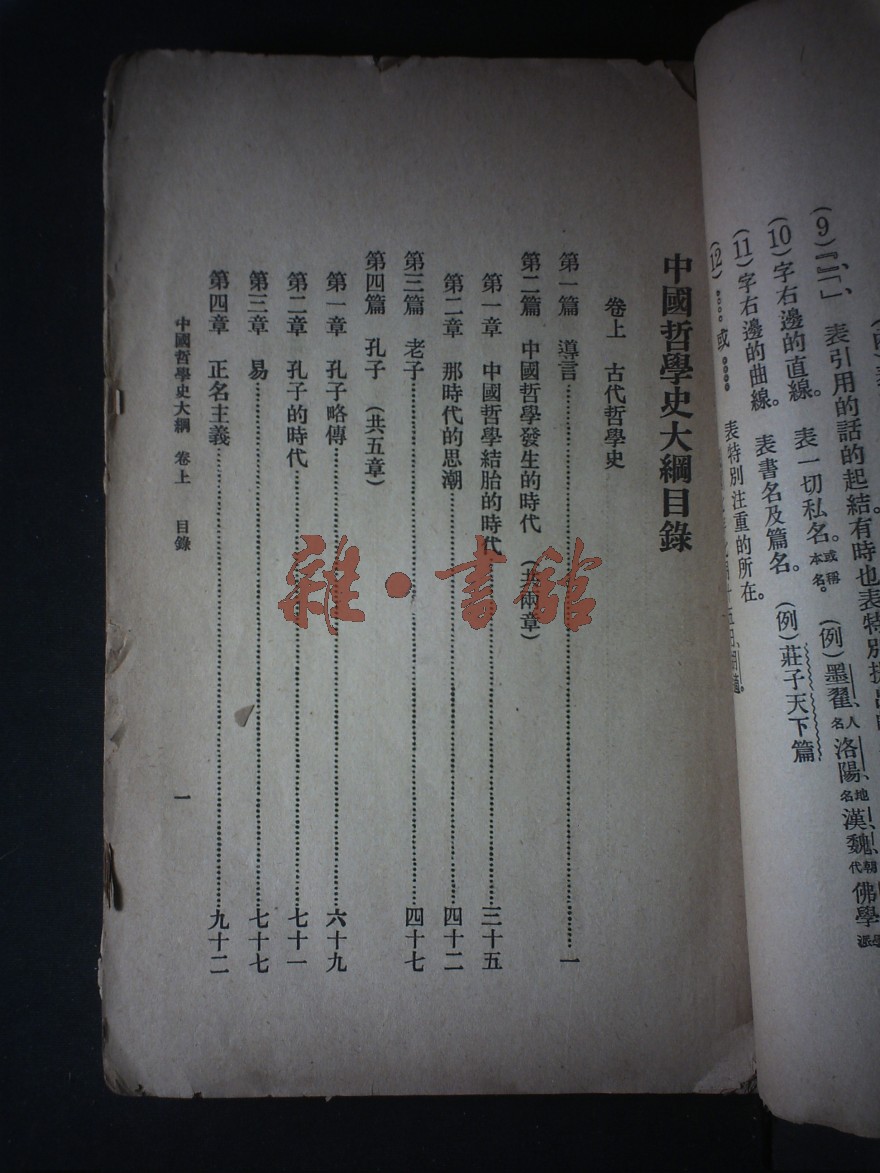 (9)『』「」、表引用的話的起結有時也表特別
(10)字右邊的直線。表一切私名。或稱本名。(例)墨翟人名洛陽地名漢魏朝代佛學
(11)字右邊的曲線。表書名及篇名。(例)莊子天下篇
(12)。。。。或。。。。表特別注重的所在。
中國哲學史大綱目錄
卷上 古代哲學史
第一篇 導言……一
第二篇 中國哲學發生的時代(共兩章)
第一章 中國哲學結胎的時代……三十五
第二章 那時代的思潮……四十二
第三篇 老子……四十七
第四篇 孔子(共五章)
第一章 孔子略傳……六十九
第二章 孔子的時代……七十一
第三章 易……七十七
第四章 正名主義……九十二
中國哲學史大綱 卷上 目錄 一
雜·書館